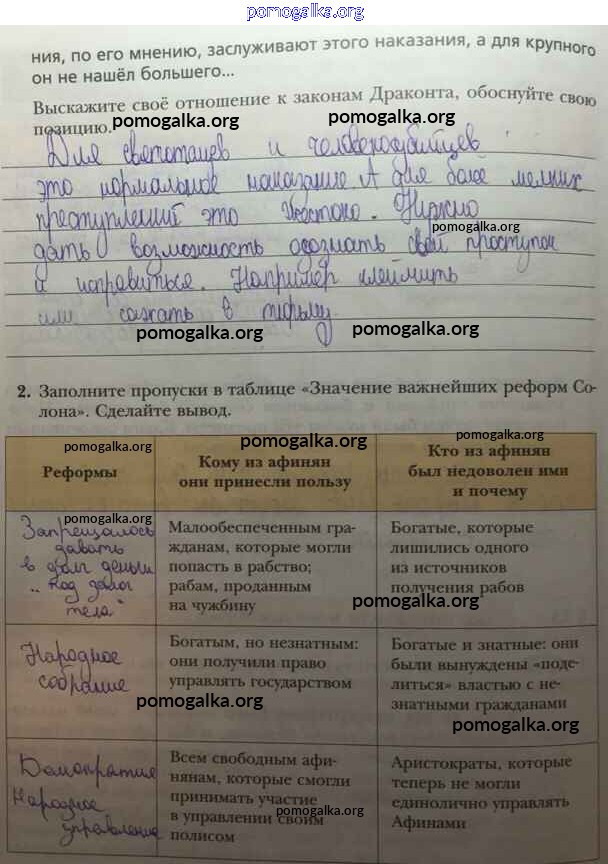 pomogalka.org
ния, по его мнению, заслуживают этого наказания, а для крупного
он не нашёл большего...
Выскажите своё отношение к законам Драконта, обоснуйте свою
pomogalka.org
позицию.
pomogalka.org
Для святотацев и человекоубийцев
это нормальное наказание. А для более мелких
преступлений это жестоко. Нужно
pomogalka.org
дать возможность осознать свой проступок
и исправиться. Например клеймить
или сажать в тюрьму.
pomogalka.org
pomogalka.org
2. Заполните пропуски в таблице «Значение важнейших реформ Со-
лона». Сделайте вывод.
pomogalka.org
pomogalka.org
pomogalka.org
Реформы
Кому из афинян
они принесли пользу
Кто из афинян
был недоволен ими
и почему
pomogalka.org
Запрещалось
давать
в долг деньги
"под залог
тела"
Малообеспеченным гра-
жданам, которые могли
попасть в рабство;
рабам, проданным
на чужбину
Богатые, которые
лишились одного
из источников
получения рабов
pomogalka.org
pomogalka.org
Народное
собрание
Богатым, но незнатным:
они получили право
управлять государством
pomogalka.org
Богатые и знатные: они
были вынуждены «поде-
литься» властью с не-
знатными гражданами
pomogalka.org
Демократия
Народное
управление
Всем свободным афи-
нянам, которые смогли
принимать участие
в управлении своим
полисом
pomogalka.org
Аристократы, которые
теперь не могли
единолично управлять
Афинами